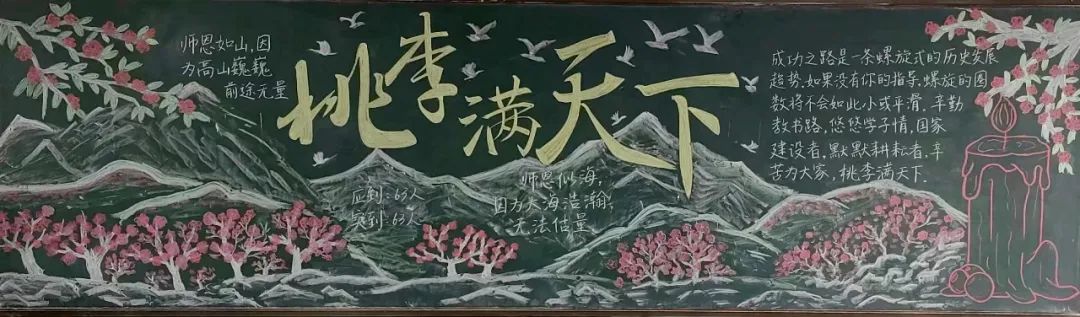 师恩如山,因
为高山巍巍
前途无量
桃李满天下
应到:63人
实到:63人
师恩似海,
因为大海浩瀚,
无法估量
成功之路是一条螺旋式的历史发展
趋势.如果没有你的指导.螺旋的圈
数将不会如此小或平滑.辛勤
教书路,悠悠学子情,国家
建设者,默默耕耘者,辛
苦为大家,桃李满天下.